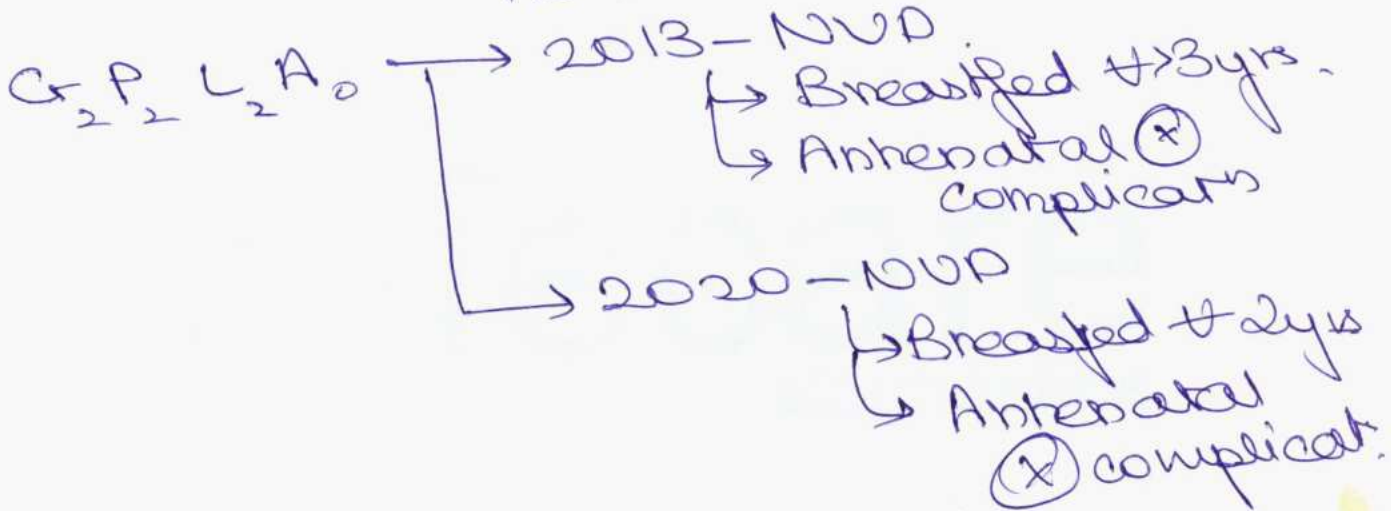 G₂P₂L₂A₀ → 2013 – NVD
↳ Breastfed ∀ >3yrs.
↳ Antenatal ⓧ
complicatⁿˢ
→ 2020 – NVD
↳ Breastfed ∀ 2yrs
↳ Antenatal
ⓧ complicat.